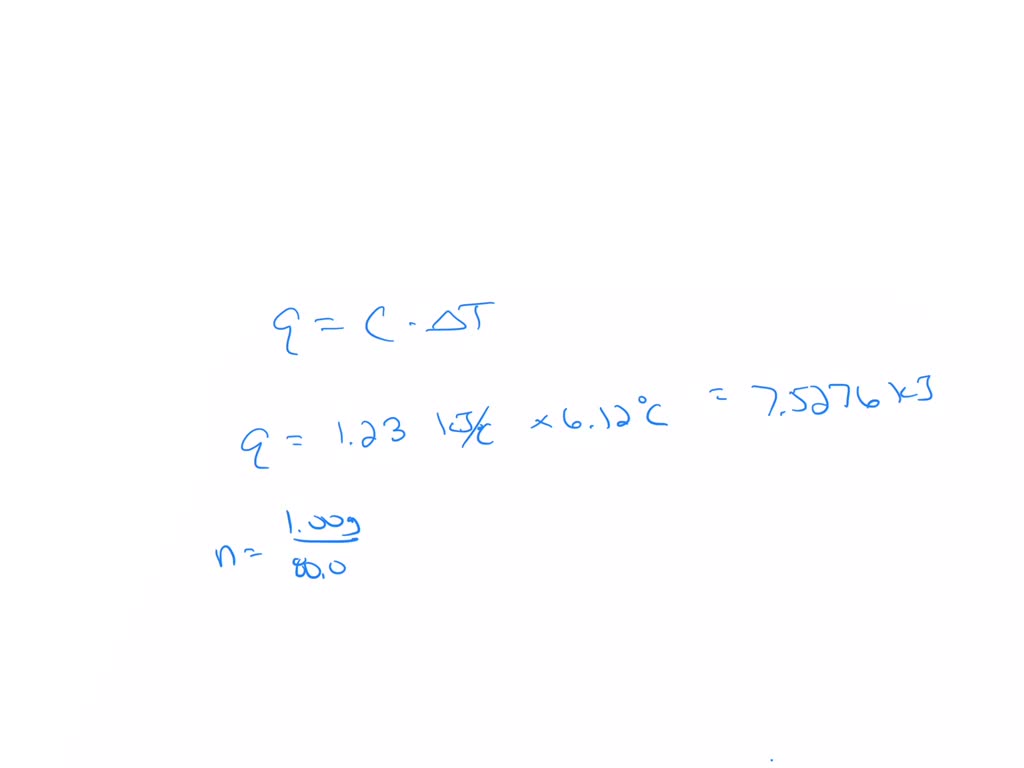 q = C · ΔT
q = 1.23 kJ/c × 6.12°C = 7.5276 kJ
n = 1.00g
80.0